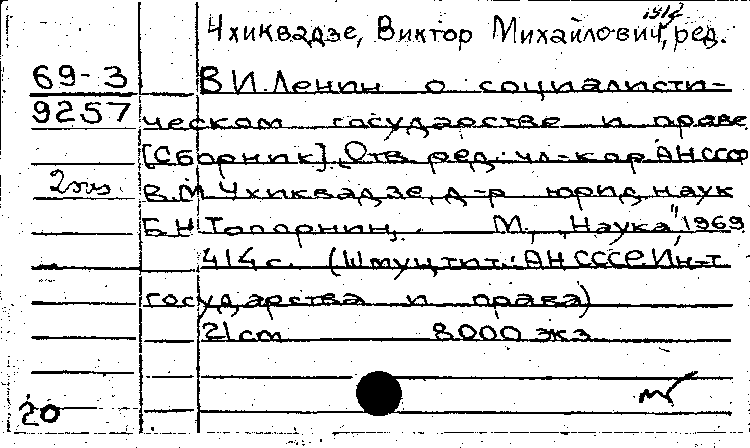 1912
Чхиквадзе, Виктор Михайлович, ред.
69-3
9257
В.И.Ленин о социалисти-
ческом государстве и праве
[Сборник]. Отв. ред.: чл.-кор АН СССР
2экз.
В.М.Чхиквадзе, д-р юрид. наук
Б.Н.Топорнин. М., „Наука", 1969
414 с. (Шмуцтит.: АН СССР. Ин-т
государства и права)
21 cm 8000 экз
20